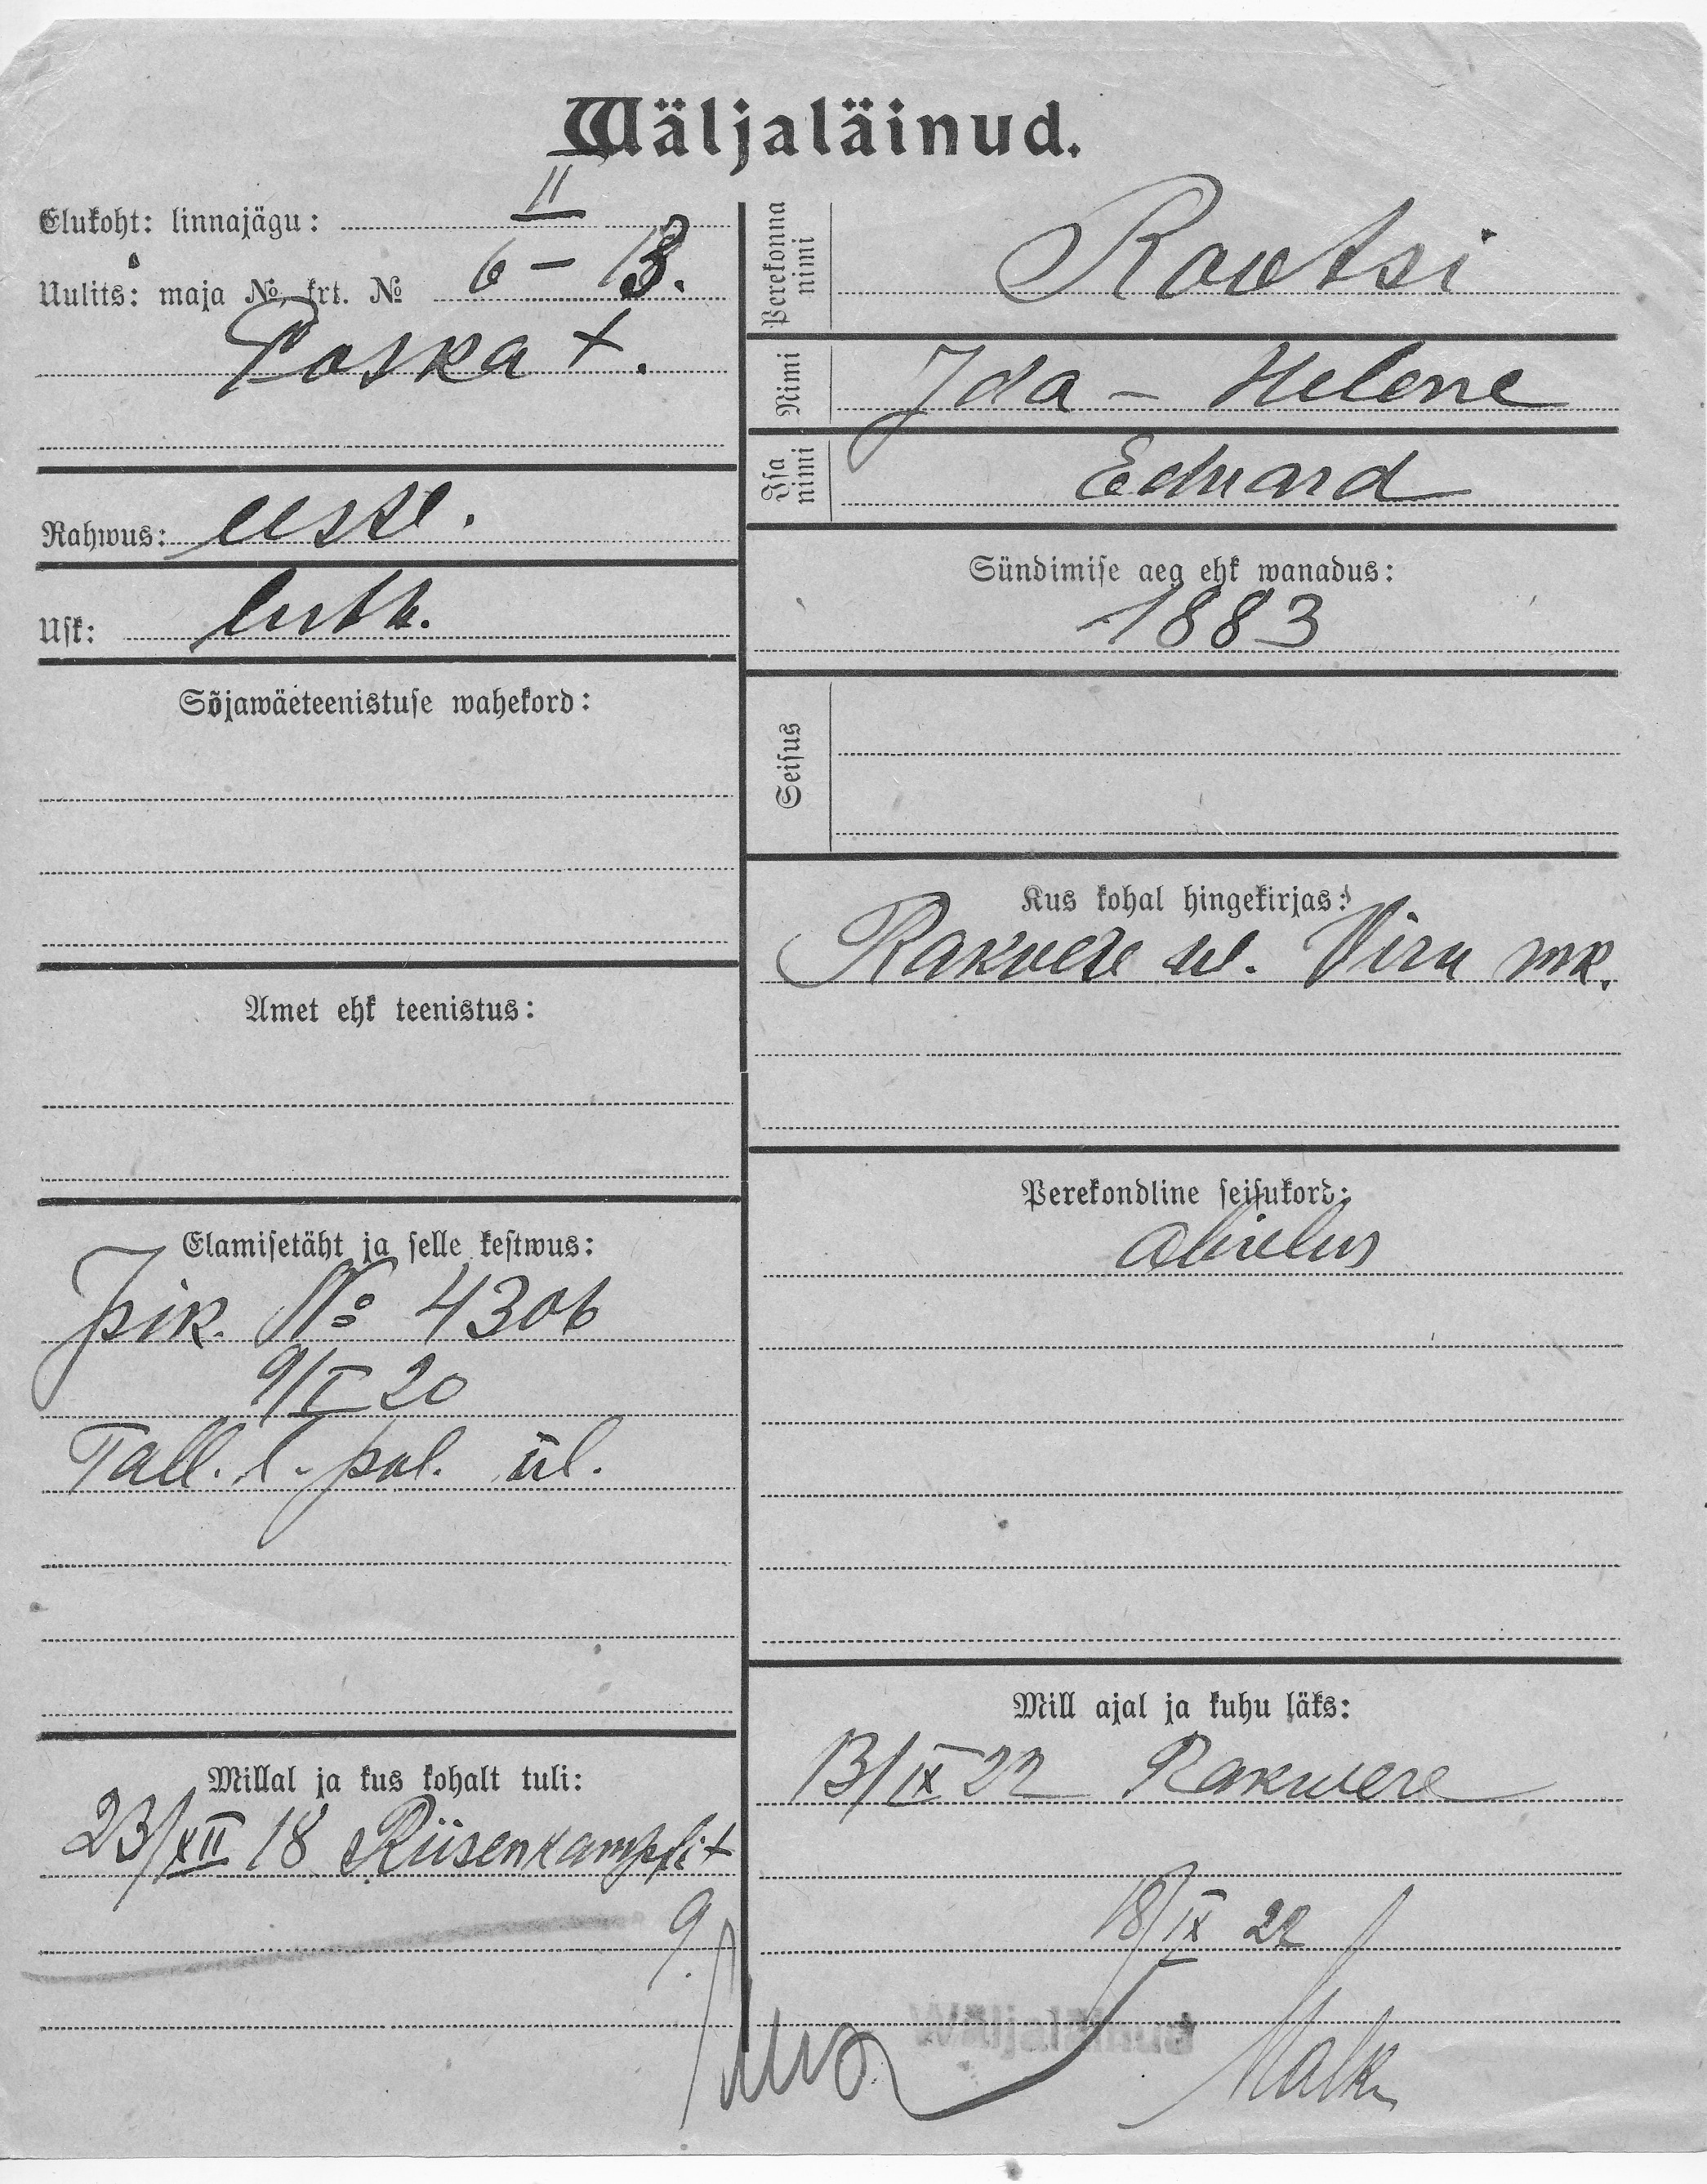 Wäljaläinud.
Elukoht: linnajägu: II
Uulits: maja № krt. № 6 – 13.
Poska t.
Rahwus: eestl.
Usk: luth.
Sõjawäeteenistuse wahekord:
Amet ehk teenistus:
Elamisetäht ja selle kestwus:
Isik. № 4306
9/I 20
Tall. l. pol. ül.
Millal ja kus kohalt tuli:
23/XII 18 Riisenkampfi t
9.
Perekonna nimi Rootsi
Nimi Ida – Helene
Isa nimi Eduard
Sündimise aeg ehk wanadus:
1883
Seisus
Kus kohal hingekirjas:
Rakvere vl. Viru mk.
Perekondline seisukord:
abielus
Mill ajal ja kuhu läks:
13/IX 22 Rakwere
18/IX 22
Wäljaläinud